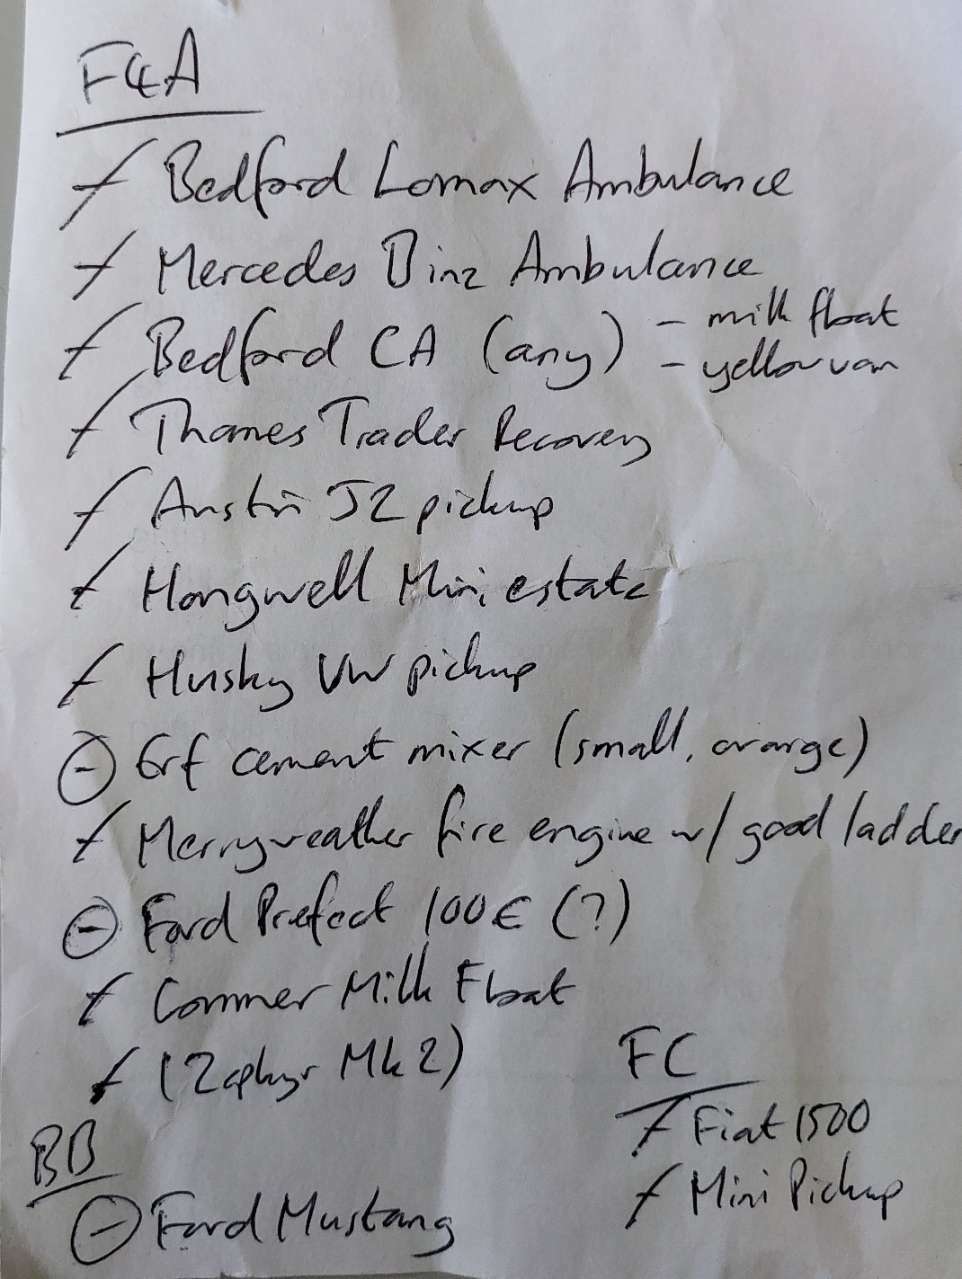 F&A
Bedford Lomax Ambulance
Mercedes Binz Ambulance
Bedford CA (any) - milk float
- yellow van
Thames Trader Recovery
Austin J2 pickup
Hongwell Mini estate
Husky VW pickup
Erf cement mixer (small, orange)
Merryweather fire engine w/ good ladder
Ford Prefect 100E (?)
Commer Milk Float
(Zephyr Mk 2)
FC
Fiat 1500
Mini Pickup
BB
Ford Mustang